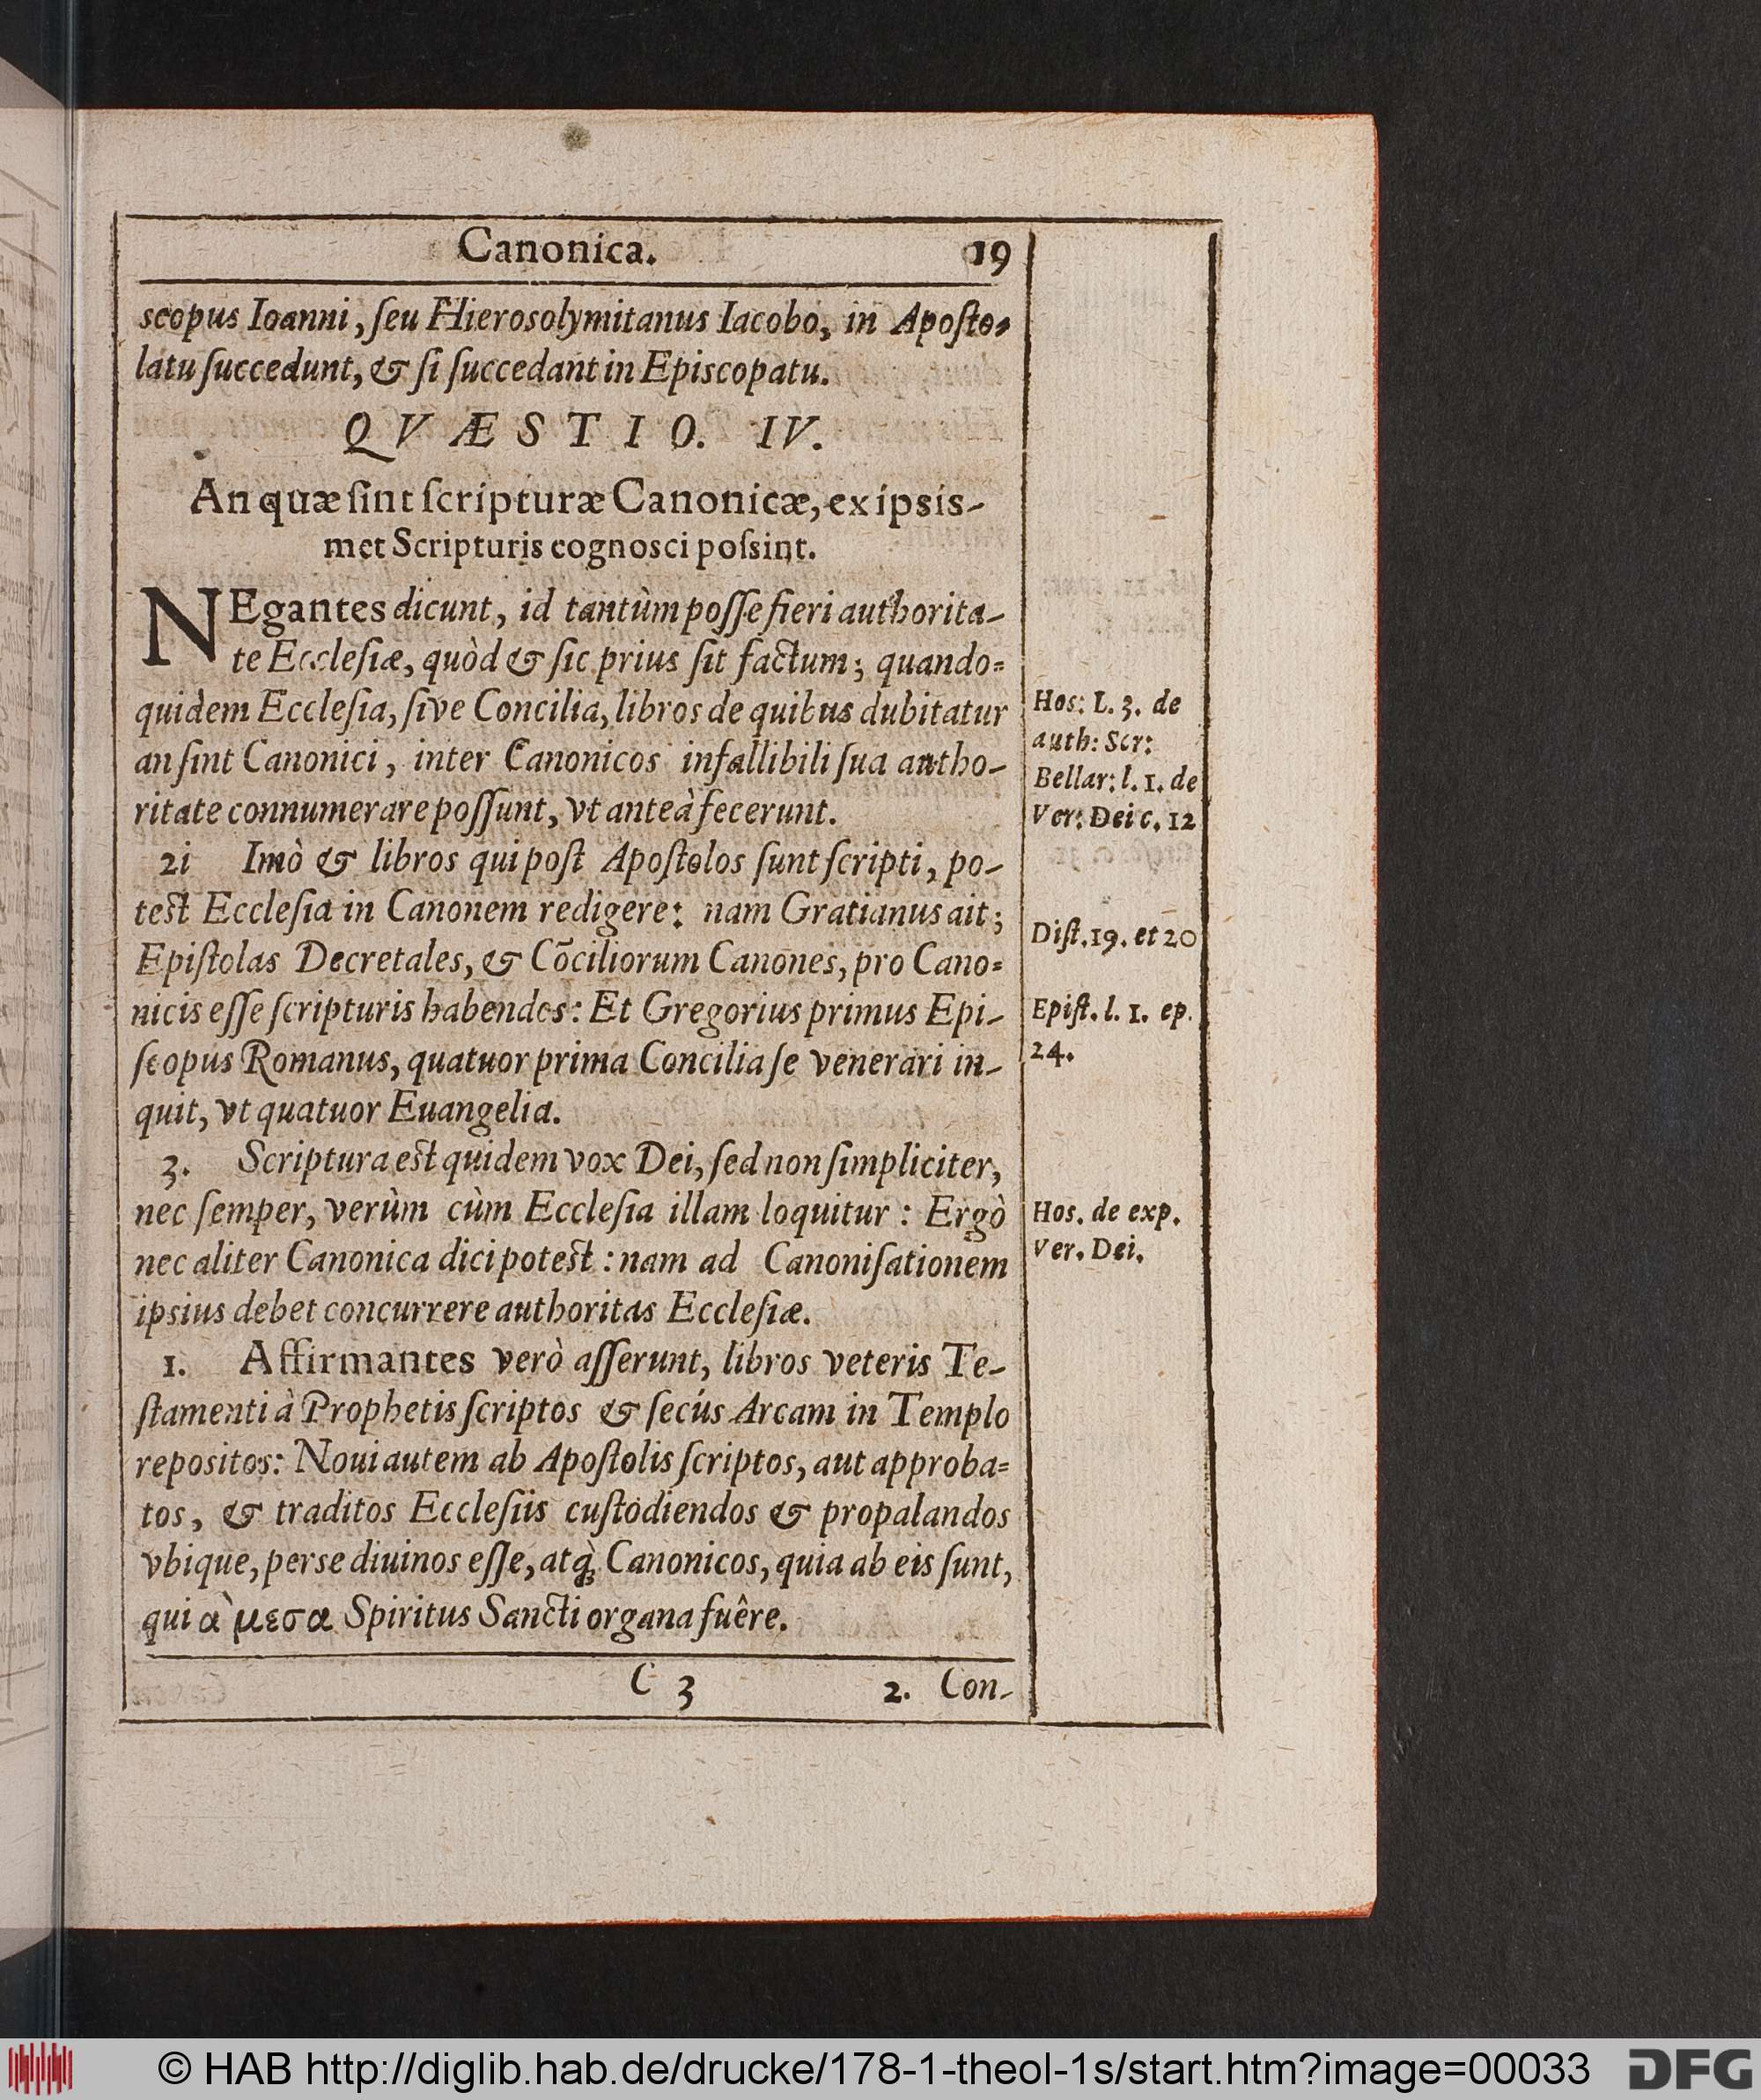 Canonica. 19
scopus Ioanni, ſeu Hierosolymitanus Iacobo, in Apoſto-
latu ſuccedunt, & ſi ſuccedant in Episcopatu.
QVÆSTIO. IV.
An quæ ſint ſcripturæ Canonicæ, ex ipsis-
met Scripturis cognosci poſsint.
NEgantes dicunt, id tantùm poſſe fieri authorita-
te Eccleſiæ, quòd & ſic prius ſit factum; quando-
quidem Eccleſia, ſive Concilia, libros de quibus dubitatur
an ſint Canonici, inter Canonicos infallibili ſua autho-
ritate connumerare poſſunt, vt anteà fecerunt.
Hos: L. 3. de
auth: Scr:
Bellar: l. 1. de
Ver: Dei c. 12
2i Imò & libros qui poſt Apoſtolos ſunt ſcripti, po-
test Eccleſia in Canonem redigere: nam Gratianus ait;
Epiſtolas Decretales, & Cõciliorum Canones, pro Cano-
nicis eſſe ſcripturis habendos: Et Gregorius primus Epi-
ſcopus Romanus, quatuor prima Concilia ſe venerari in-
quit, vt quatuor Euangelia.
Diſt. 19. et 20
Epiſt. l. 1. ep.
24.
3. Scriptura est quidem vox Dei, ſed non ſimpliciter,
nec ſemper, verùm cùm Eccleſia illam loquitur: Ergò
nec aliter Canonica dici potest: nam ad Canoniſationem
ipsius debet concurrere authoritas Eccleſiæ.
Hos. de exp.
Ver. Dei.
1. Affirmantes verò aſſerunt, libros veteris Te-
ſtamenti à Prophetis ſcriptos & ſecús Arcam in Templo
repositos: Noui autem ab Apoſtolis ſcriptos, aut approba-
tos, & traditos Eccleſiis cuſtodiendos & propalandos
vbique, per se diuinos eſſe, atq̀ꝫ Canonicos, quia ab eis ſunt,
qui α`μεσα Spiritus Sancti organa fuêre.
C 3 2. Con-
© HAB http://diglib.hab.de/drucke/178-1-theol-1s/start.htm?image=00033
DFG